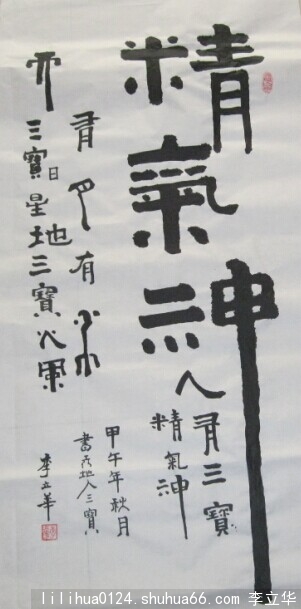 精氣神
人有三寶
精氣神
有月有水
天三寶日星地三寶火風
甲午年秋月
書天地人三寶
李立華
lilihua0124.shuhua66.com 李立华